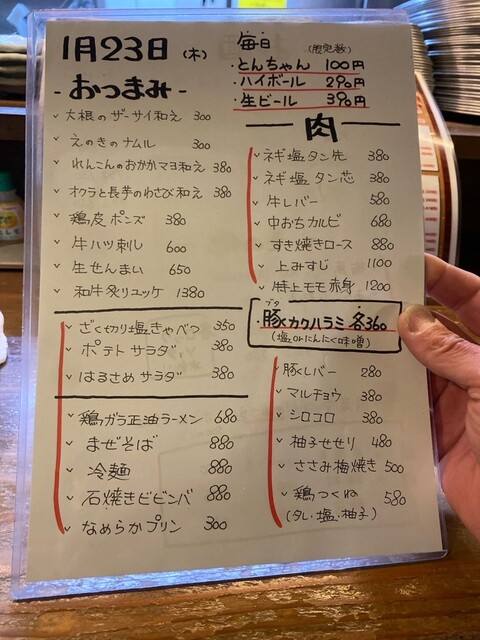 1月23日(木)
-おつまみ-
大根のザーサイ和え 300
えのきのナムル 300
れんこんのおかかマヨ和え 380
オクラと長芋のわさび和え 380
鶏皮ポンズ 380
牛ハツ刺し 600
生せんまい 650
和牛炙りユッケ 1380
ざく切り塩きゃべつ 350
ポテトサラダ 380
はるさめサラダ 380
鶏ガラ正油ラーメン 680
まぜそば 880
冷麺 880
石焼きビビンバ 880
なめらかプリン 300
毎日(限定数)
・とんちゃん 100円
・ハイボール 290円
・生ビール 390円
肉
ネギ塩タン先 380
ネギ塩タン芯 380
牛レバー 580
中おちカルビ 680
すき焼きロース 880
上みすじ 1100
特上モモ赤身 1200
ブタ
豚カクハラミ 各360
(塩orにんにく味噌)
豚レバー 280
マルチョウ 380
シロコロ 380
柚子せせり 480
ささみ梅焼き 500
鶏つくね 580
(タレ・塩・柚子)